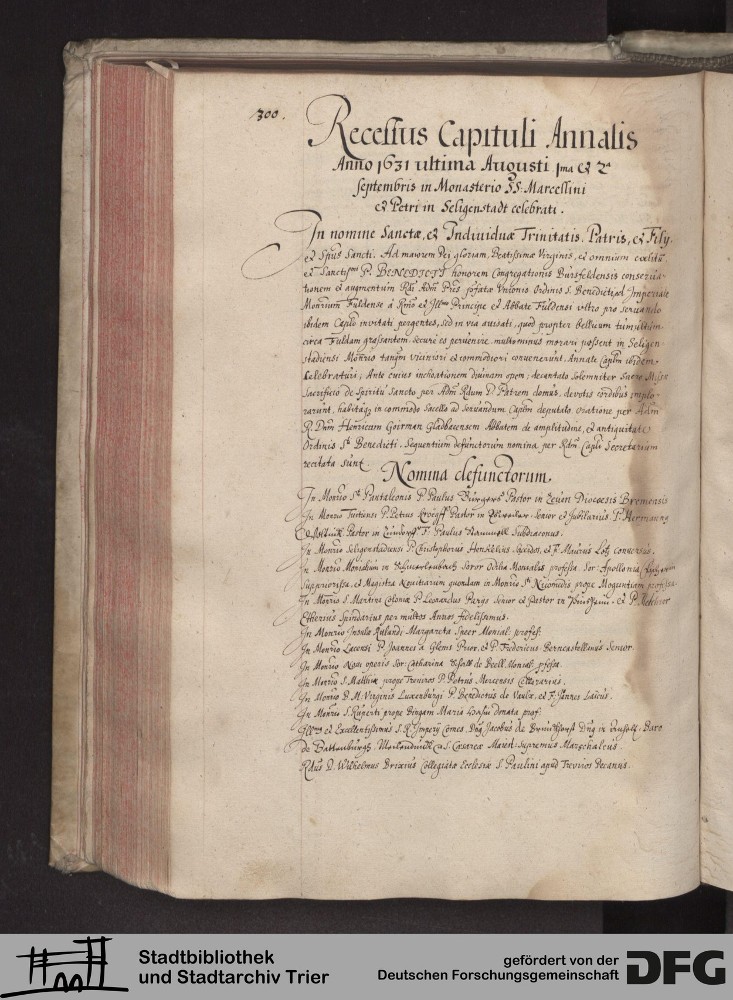 300.
Recessus Capituli Annalis
Anno 1631 ultima Augusti 1ma et 2a
septembris in Monasterio SS. Marcellini
et Petri in Seligenstadt celebrati.
In nomine Sanctæ, et Individuæ Trinitatis, Patris, et Filij,
et Spūs Sancti. Ad maiorem Dei gloriam, Beatissimæ Virginis, et omnium cælitū
et Sanctissmi P. BENEDICTI honorem Congregationis Bursfeldensis conserua-
tionem et augmentum Rdi Adm Pres Vnionis Ordinis S. Benedicti ad Imperiale
Monrium Fuldense à Rmo et Illmo Principe et Abbate Fuldensi vltro pro seruando
ibidem Caplo invitati pergentes, sed in via auisati, quod propter bellicum tumultum
circa Fuldam grassantem, securè eo peruenire, multominus morari possent in Seligen-
stadiensi Monrio tanqm viciniori et commodiori convenerunt, Annale Caplm ibidem
celebraturi; Ante cuius inchoationem diuinam opem; decantato solemniter Sacro Missæ
sacrificio de Spiritu Sancto per Adm Rdum D. Patrem domus, devotis cordibus implo-
rarunt, habitaq in commodo Sacello ad seruandum Caplm deputato, oratione per Adm
R. Dnm Henricum Gladbacensem Abbatem de amplitudine, et antiquitate
Ordinis Sti Benedicti. Sequentium defunctorum nomina, per Rdm Capli Secretarium
recitata sunt.
Nomina defunctorum.
In Monrio Sti Pantaleonis P. Paulus Pastor in Diocesis Bremensis
In Monrio Tuitiensi P. Petrus Pastor in senior et Jubilarius. P. Hermannus
Pastor in F. Paulus Subdiaconus.
In Monrio Seligenstadiensi P. Christophorus et F. Maurus Lotz conuersus.
In Monrio Monialium in Soror Odilia Monialis professa. Sor: Apollonia
Suppriorissa, et Magistra Nouitiarum quondam in Monrio Sti Nicomedis prope Moguntiam professa
In Monrio S. Martini Coloniæ P. Leonardus Senior et Pastor in et P. Melchior
per multos Annos fidelissimus.
In Monrio Insulæ Rulandi Margareta Monial: profess:
In Monrio Lacensi P. Joannes à Glems Prior, et P. Fridericus Berncastellanus Senior
In Monrio Noui operis Sor: Catharina Monial: pfessa
In Monrio S. Matthiæ prope Treviros P. Petrus Cellerarius.
In Monrio B. M. Virginis Luxemburgi P. Benedictus de Vaulx, et F. Joannes Laicus.
In Monrio S. Ruperti prope Bingam Maria donata prof:
Illmus et Excellentissimus S. R. Imperij Comes, Dns Jacobus de Dns in Baro
de Battenburgh, S. Cæsareæ Maiest: supremus Marschalcus.
Rdus D. Wilhelmus Brixius Collegiatæ Ecclesiæ S. Paulini apud Treviros Decanus.
Stadtbibliothek
und Stadtarchiv Trier
gefördert von der
Deutschen Forschungsgemeinschaft
DFG